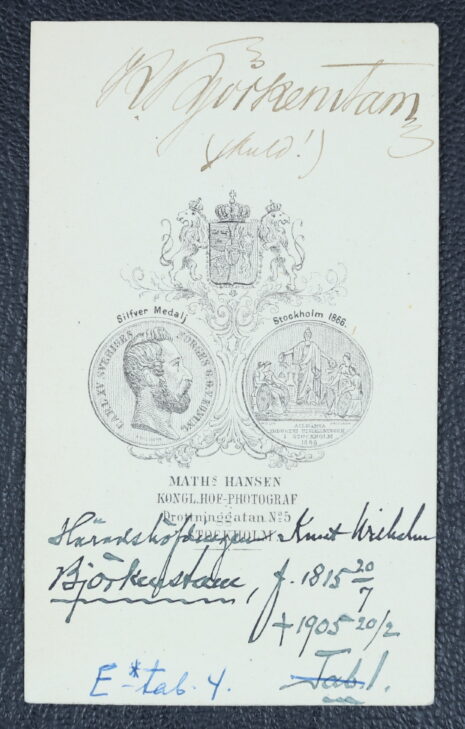 K Björkenstam
Silfver Medalj
Stockholm 1866.
CARL XV SVERIGES NORGES G. O. V. KONUNG
ALLMÄNNA
INDUSTRI UTSTÄLLNINGEN
I STOCKHOLM
1866
MATHS HANSEN
KONGL. HOF-PHOTOGRAF
Drottninggatan No 5
STOCKHOLM
Häradshöfdingen Knut Wilhelm
Björkenstam, f. 1815 20/7
† 1905 20/2
E* tab. 4. Tab 1.